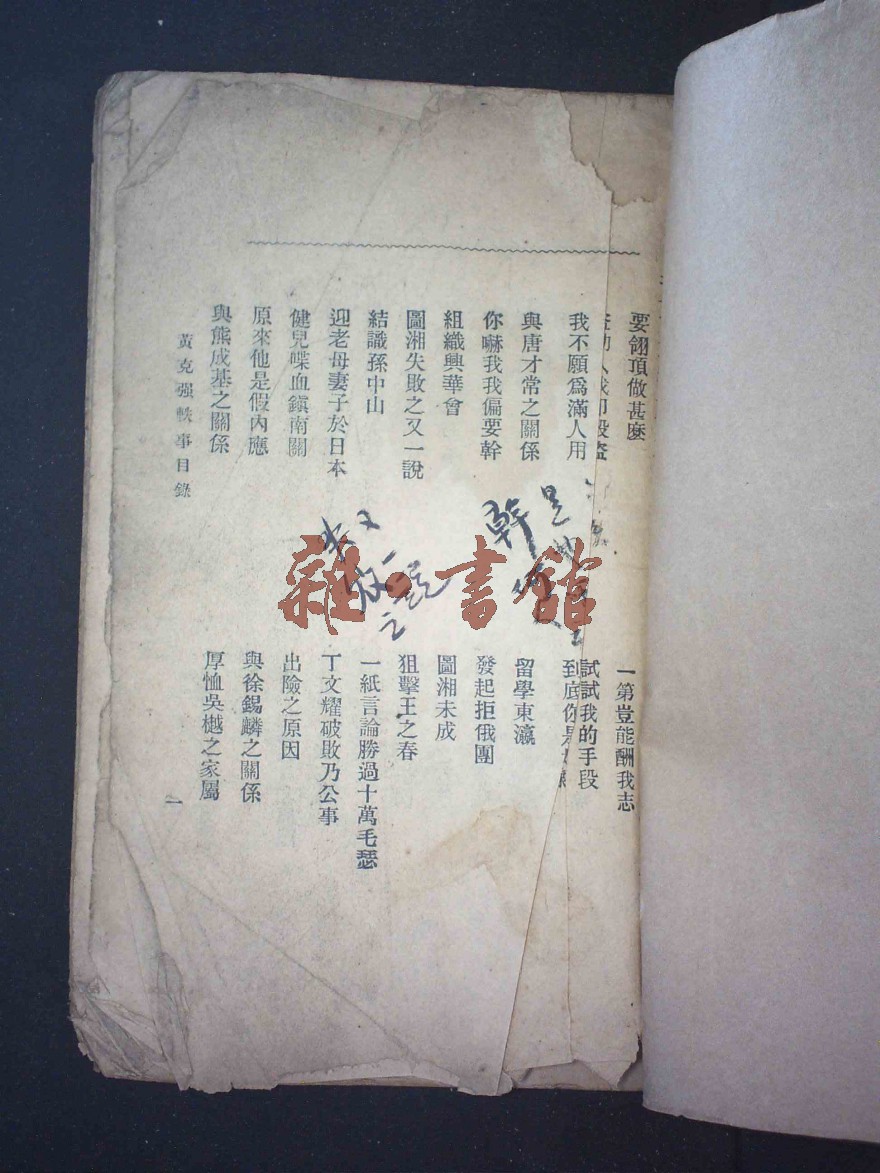 要翎頂做甚麽
一第豈能酬我志
試試我的手段
我不願爲滿人用
到底你是
與唐才常之關係
留學東瀛
你嚇我我偏要幹
發起拒俄團
組織興華會
圖湘未成
圖湘失敗之又一說
狙擊王之春
結識孫中山
一紙言論勝過十萬毛瑟
迎老母妻子於日本
丁文耀破敗乃公事
健兒喋血鎭南關
出險之原因
原來他是假內應
與徐錫麟之關係
與熊成基之關係
厚恤吳樾之家屬
黃克强軼事目錄
一
雜·書館